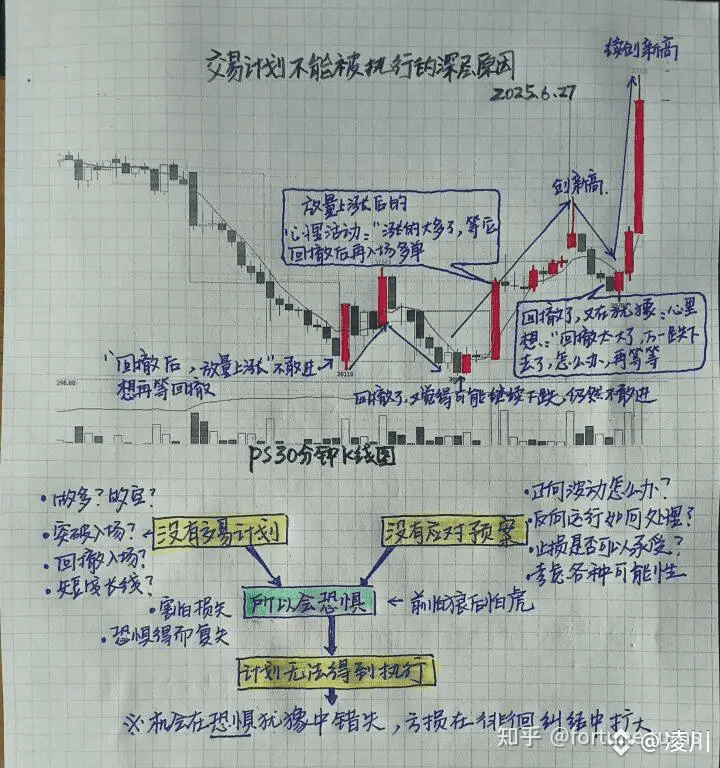 交易计划不能被执行的深层原因
2025.6.27
续创新高
创新高.
放量上涨后的
心理活动:"涨的太多了,等后
回撤后再入场多单
回撤了,又在犹豫:心里
想:"回撤太大了,万一跌下
去了,怎么办,再等等
"回撤后,放量上涨"不敢进
想再等回撤
回撤了,又觉得可能继续下跌,仍然不敢进
296.00
30110
PS30分钟K线图
·做多?做空?
·突破入场?
·回撤入场?
·短线长线?
没有交易计划
没有应对预案
·正向波动怎么办?
·反向运行如何处理?
·止损是否可以承受?
·考虑各种可能性
·害怕损失
·恐惧得而复失
所以会恐惧
←前怕狼后怕虎
计划无法得到执行
※机会在恐惧犹豫中错失,亏损在徘徊纠结中扩大
知乎 @fortune
@凌川